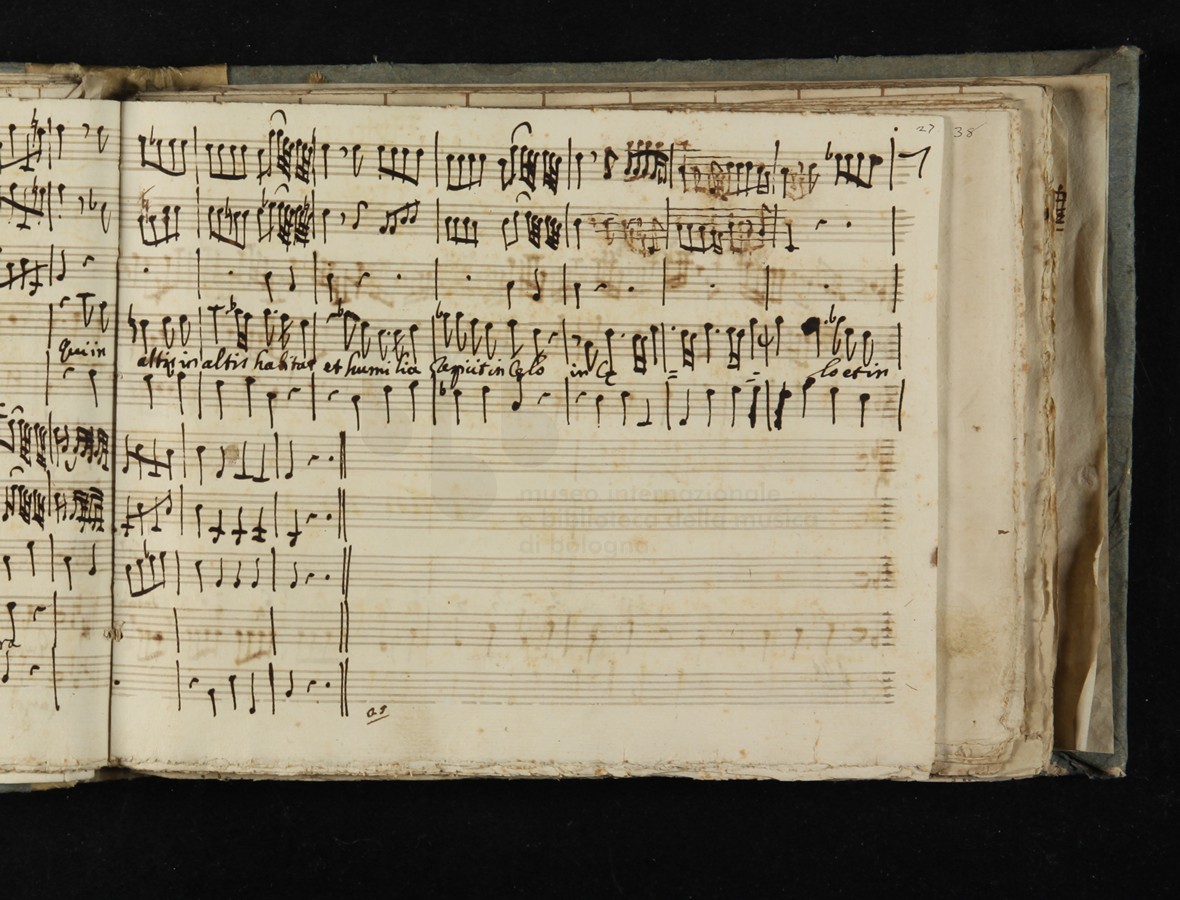 27 38
qui in altis in altis habitat et humilia respicit in Celo in Ce = = lo et in
museo internazionale
biblioteca della musica
di bologna